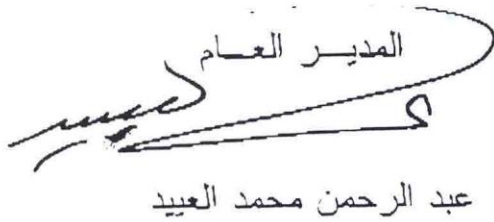 المدير العام
عبد الرحمن محمد العبيد